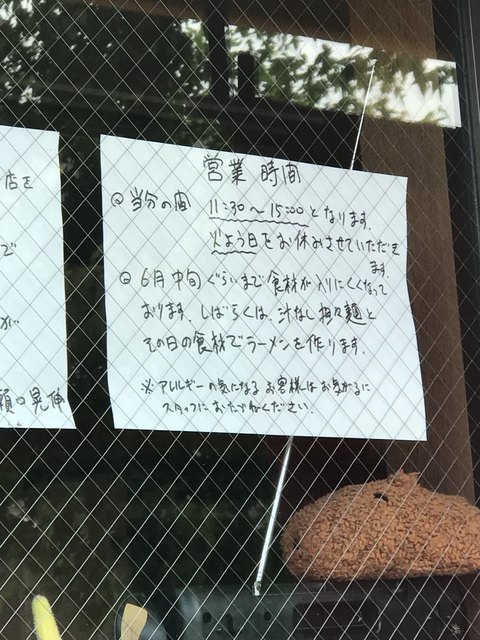 営業時間
◎当分の間 11:30〜15:00となります。
火よう日をお休みさせていただき
ます。
◎6月中旬ぐらいまで食材が入りにくくなって
おります。しばらくは、汁なし担々麺と
その日の食材でラーメンを作ります。
※アレルギーの気になるお客様はお気がるに
スタッフにおたずねください。
店を
で
が
晃伸